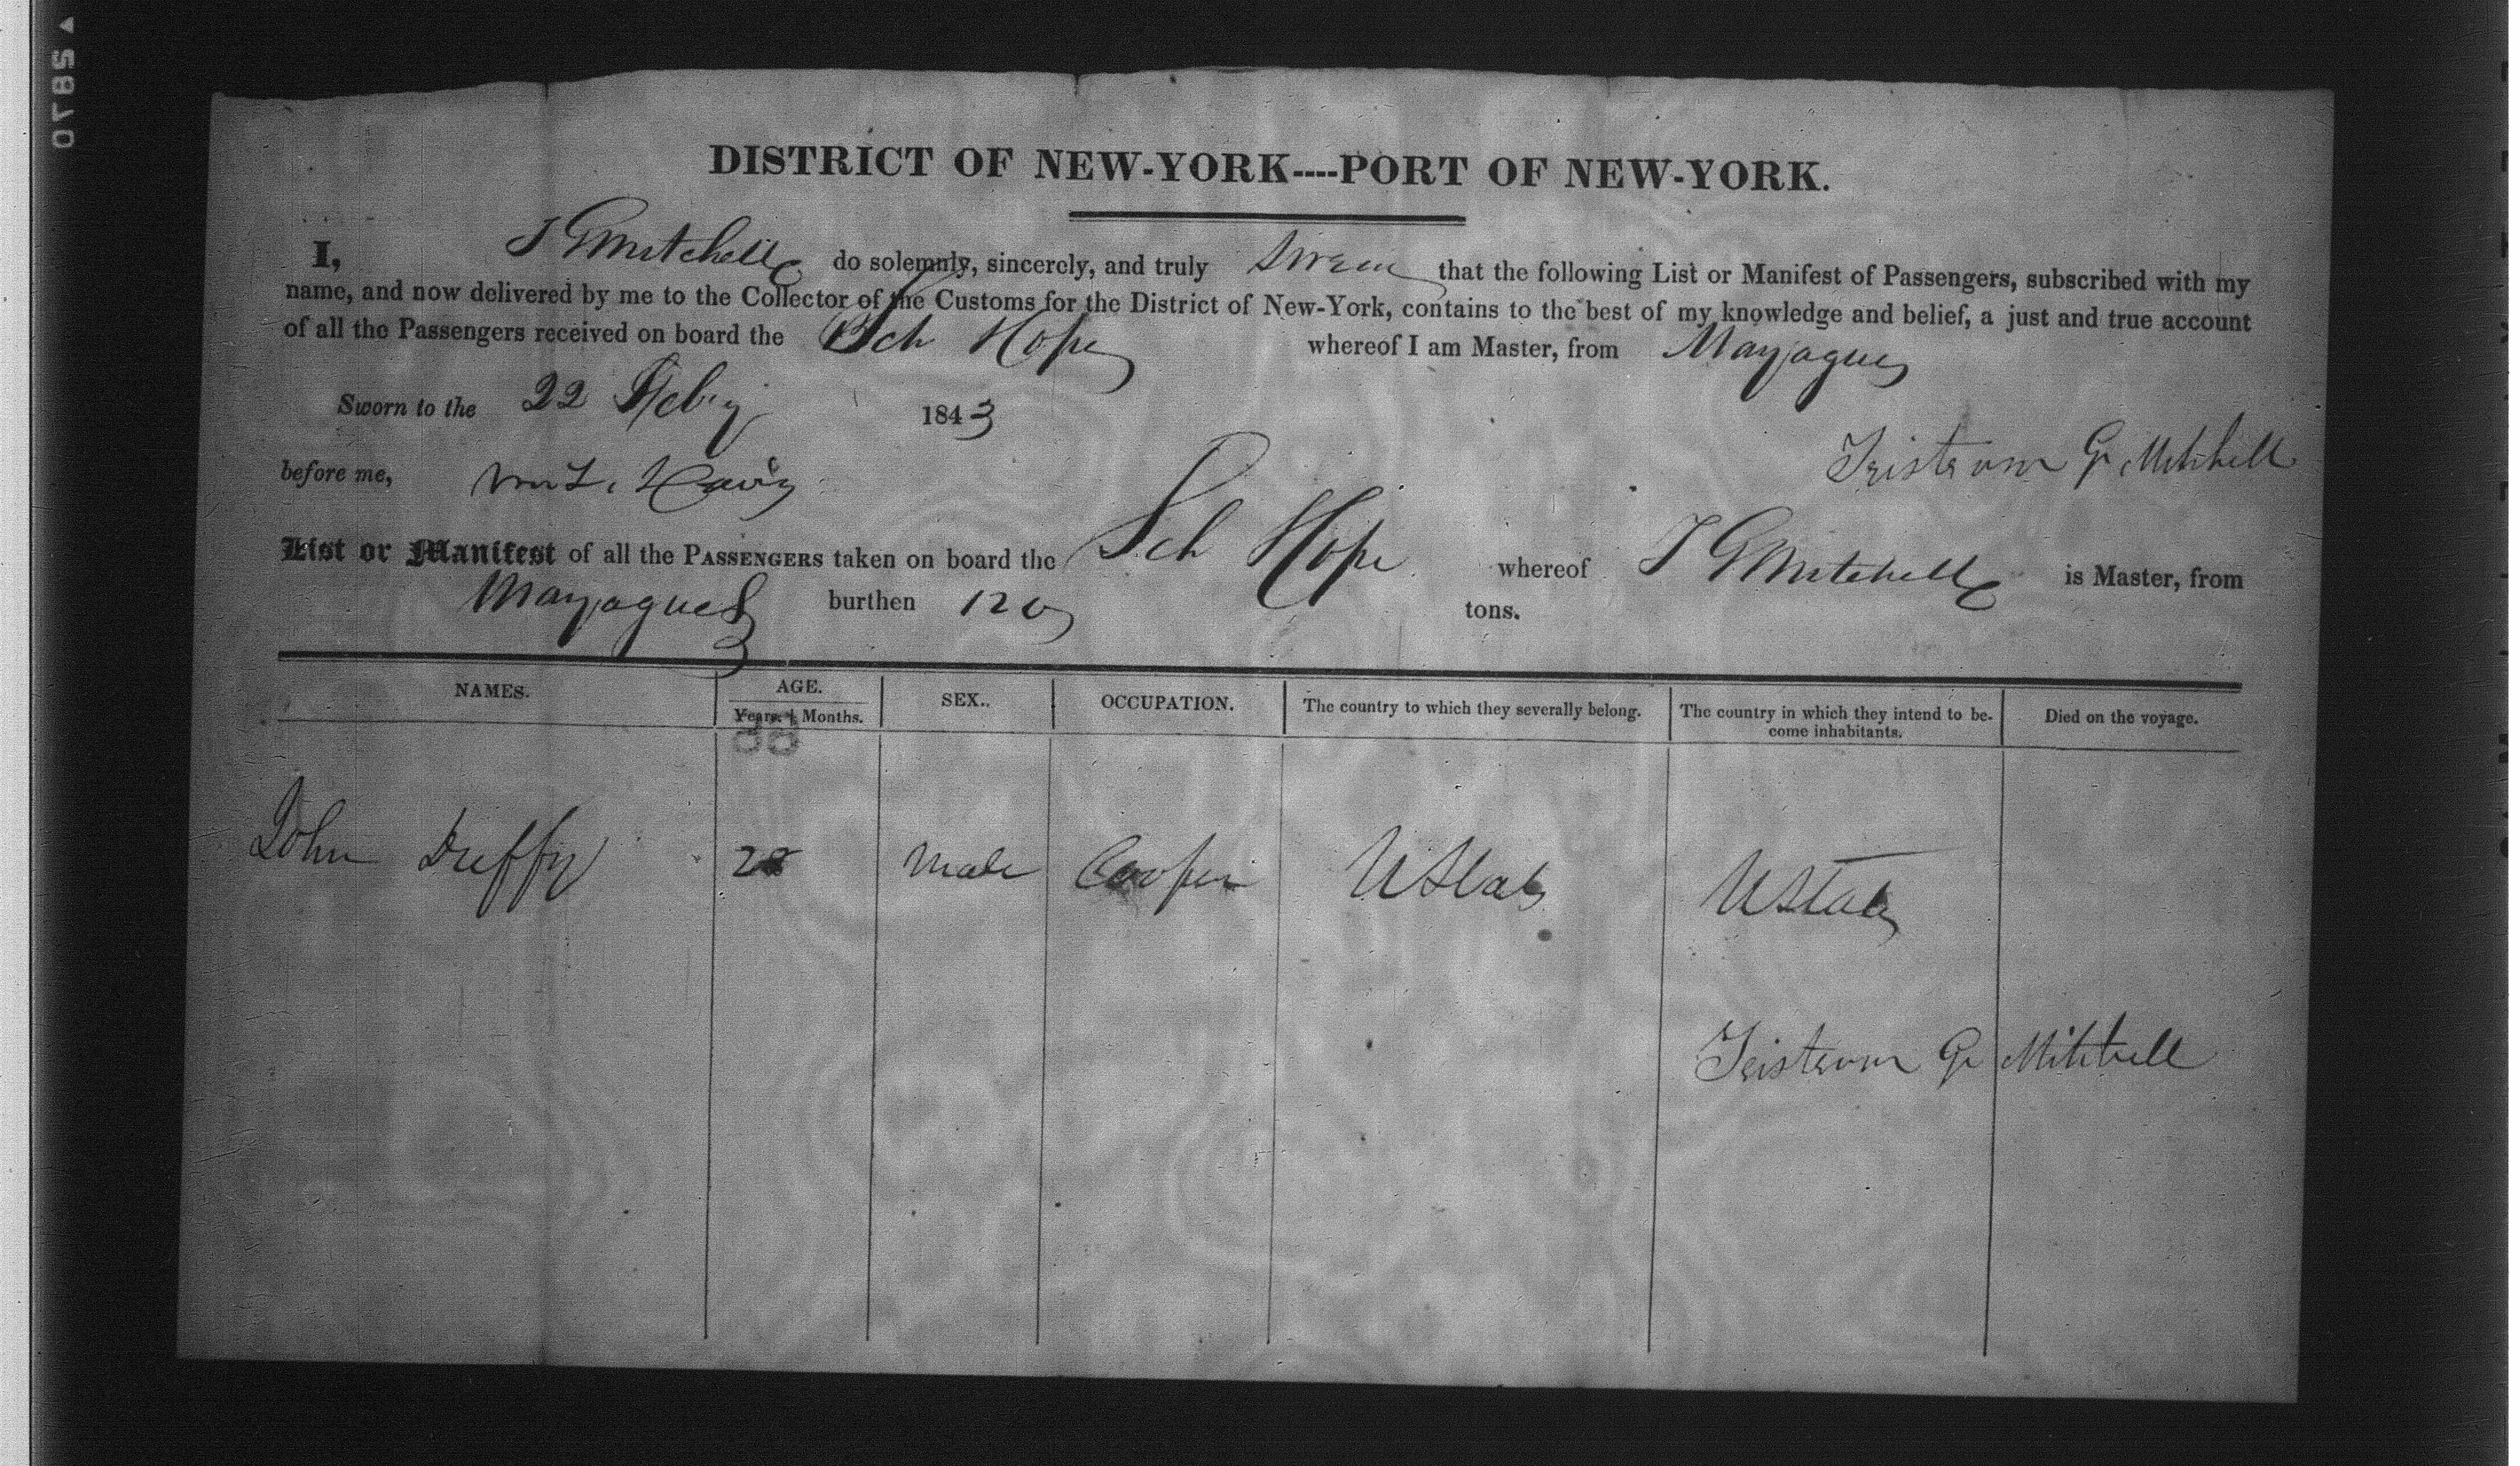 0785
DISTRICT OF NEW-YORK----PORT OF NEW-YORK.
I, T G Mitchell do solemnly, sincerely, and truly swear that the following List or Manifest of Passengers, subscribed with my
name, and now delivered by me to the Collector of the Customs for the District of New-York, contains to the best of my knowledge and belief, a just and true account
of all the Passengers received on board the Sch Hope whereof I am Master, from Mayaguez
Sworn to the 22 Feby 1843
Tristram G Mitchell
before me,
List or Manifest of all the PASSENGERS taken on board the Sch Hope whereof T G Mitchell is Master, from
Mayaguez burthen 120 tons.
NAMES. AGE. SEX. OCCUPATION. The country to which they severally belong. The country in which they intend to be- Died on the voyage.
Years. Months. come inhabitants.
John Duffy 28 Male Cooper U States U States
Tristram G Mitchell